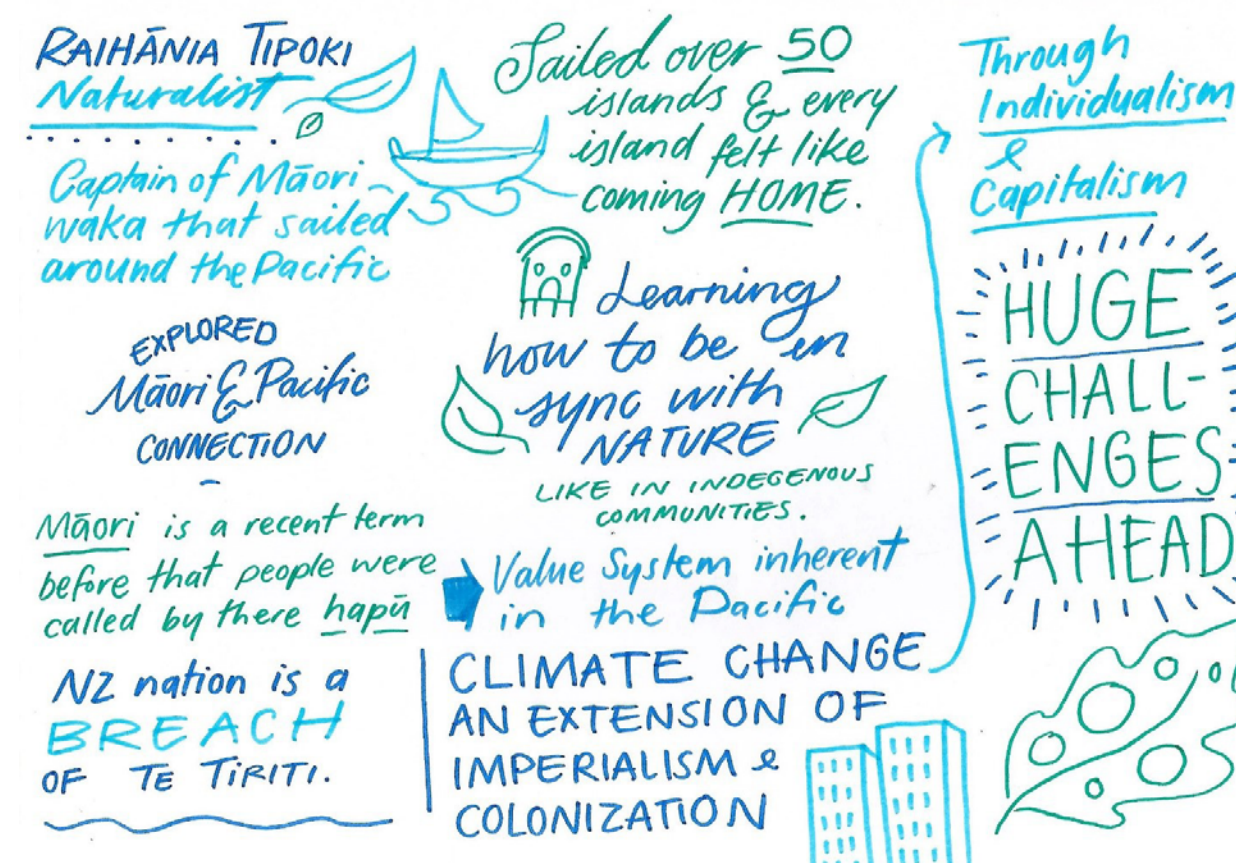 RAIHĀNIA TIPOKI
Naturalist
Captain of Māori
waka that sailed
around the Pacific
EXPLORED
Māori & Pacific
CONNECTION
Māori is a recent term
before that people were
called by there hapū
NZ nation is a
BREACH
OF TE TIRITI.
Sailed over 50
islands & every
island felt like
coming HOME.
Learning
how to be in
sync with
NATURE
LIKE IN INDEGENOUS
COMMUNITIES.
Value System inherent
in the Pacific
CLIMATE CHANGE
AN EXTENSION OF
IMPERIALISM &
COLONIZATION
Through
Individualism
&
Capitalism
HUGE
CHALL-
ENGES
AHEAD